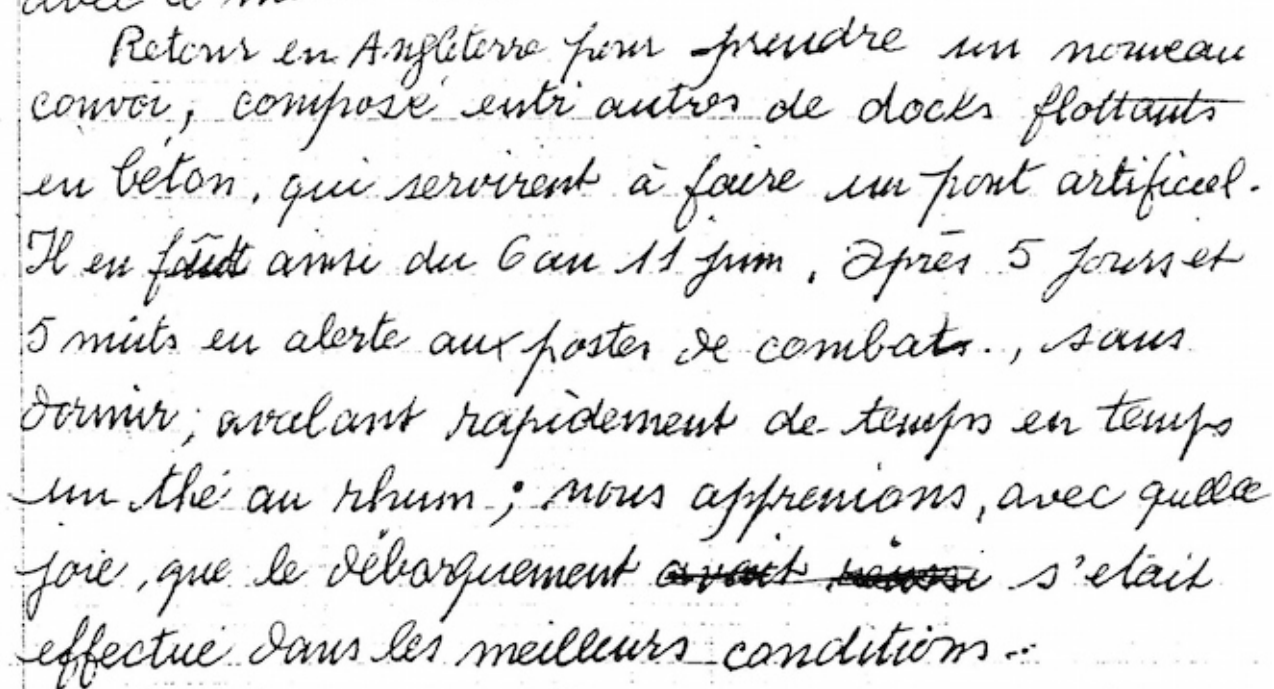 avec le
Retour en Angleterre pour prendre un nouveau
convoi, composé entr autres de docks flottants
en béton, qui servirent à faire un pont artificiel.
Il en fût ainsi du 6 au 11 juin, après 5 jours et
5 nuits en alerte aux postes de combats., sans
dormir; avalant rapidement de temps en temps
un thé au rhum; nous apprenions, avec quelle
joie, que le débarquement avait réussi s'etait
effectué dans les meilleurs conditions..